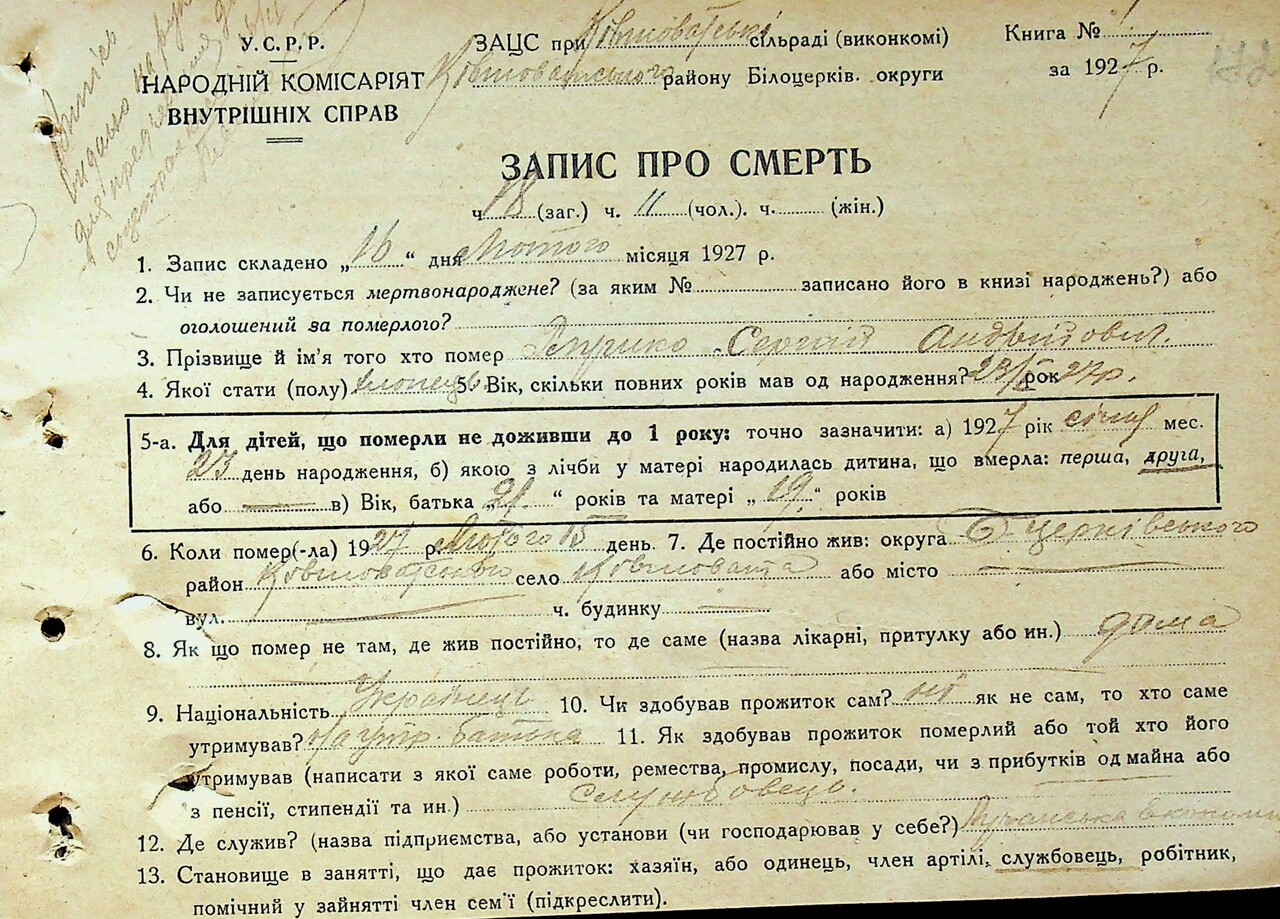 Витпісь
видано на рук
У.С.Р.Р.
НАРОДНІЙ КОМІСАРІЯТ
ВНУТРІШНІХ СПРАВ
ЗАЦС при Ковшоватські сільраді (виконкомі)
Ковшоватського району Білоцерків. округи
Книга №
за 1927 р.
ЗАПИС ПРО СМЕРТЬ
ч 18 (заг.) ч. 11 (чол.). ч. (жін.)
1. Запис складено „16“ дня Лютого місяця 1927 р.
2. Чи не записується мертвонароджене? (за яким № записано його в книзі народжень?) або
оголошений за померлого?
3. Прізвище й ім'я того хто помер Сергій Андрійович.
4. Якої стати (полу) хлопець 5. Вік, скільки повних років мав од народження? 23/I рок 27р.
5-а. Для дітей, що померли не доживши до 1 року: точно зазначити: а) 1927 рік січня мес.
23 день народження, б) якою з лічби у матері народилась дитина, що вмерла: перша, друга,
або — в) Вік, батька „21“ років та матері „19“ років
6. Коли помер(-ла) 1927 р. Лютого 15 день. 7. Де постійно жив: округа Б церківського
район Ковшоватського село Ковшовата або місто —
вул. — ч. будинку —
8. Як що помер не там, де жив постійно, то де саме (назва лікарні, притулку або ин.) дома
9. Національність Українець 10. Чи здобував прожиток сам? ні як не сам, то хто саме
утримував? на утр. батька 11. Як здобував прожиток померлий або той хто його
утримував (написати з якої саме роботи, ремества, промислу, посади, чи з прибутків од майна або
з пенсії, стипендії та ин.) Службовець.
12. Де служив? (назва підприємства, або установи (чи господарював у себе?) Лучанська економ
13. Становище в занятті, що дає прожиток: хазяїн, або одинець, член артілі, службовець, робітник,
помічний у зайнятті член сем'ї (підкреслити).